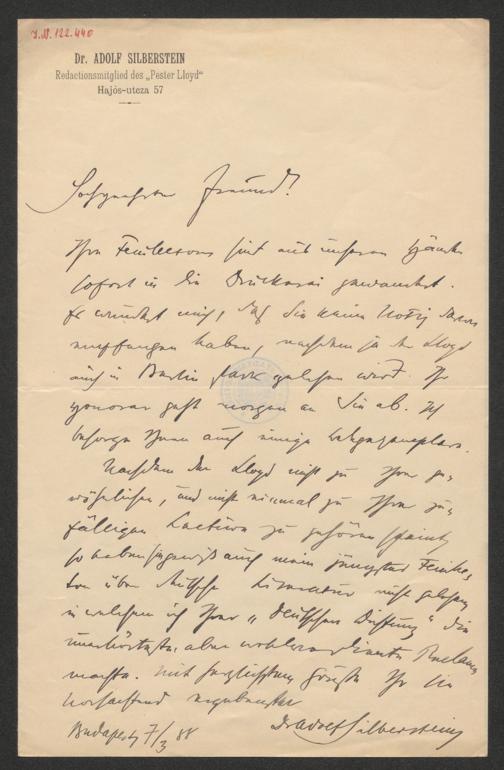 I.N. 122.440
Dr. ADOLF SILBERSTEIN
Redactionsmitglied des „Pester Lloyd“
Hajós-utcza 57
Hochgeehrter Freund!
Ihre Feuilletons sind aus unseren Händen
sofort in die Druckerei gewandert.
Es wundert mich, daß Sie keine Notiz davon
empfangen haben, nachdem ja der Lloyd
auch in Berlin stark gelesen wird. Ihr
Honorar geht morgen an Sie ab. Ich
besorge Ihnen auch einige
Nachdem der Lloyd nicht zu Ihrer ge-
wöhnlichen, und nicht einmal zu Ihrer zu-
fälligen Lectüre zu gehören scheint,
so haben Sie gewiß auch mein jüngstes Feuille-
ton über deutsche Literatur nicht gelesen,
in welchem ich Ihrer „Deutschen Dichtung“ die
unerhörteste, aber wohlverdiente Reclame
machte. Mit herzlichstem Gruße Ihr Sie
hochachtend ergebenster
Dr Adolf Silberstein
Budapest 7/3 88